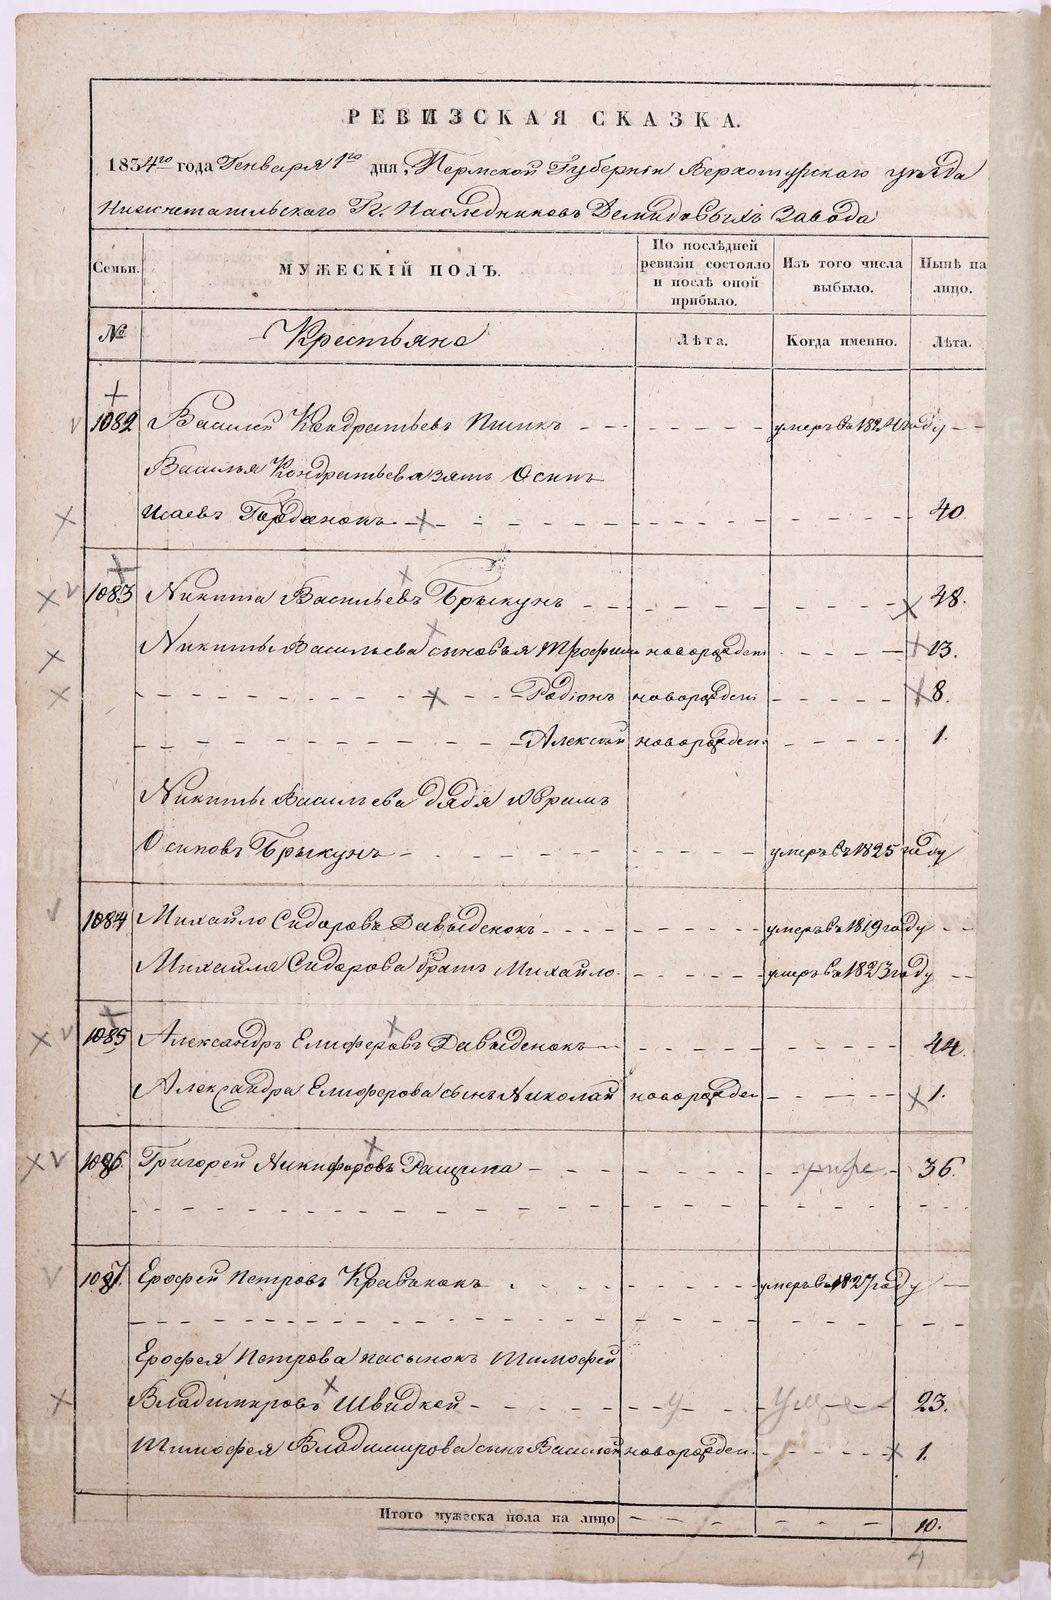 РЕВИЗСКАЯ СКАЗКА.
1834го года Генваря 1го дня, Пермской Губерніи Верхотурскаго уѣзда
Нижнетагильскаго Гг. Наслѣдниковъ Демидовыхъ Завода
Семьи. МУЖЕСКІЙ ПОЛЪ. По послѣдней ревизіи состояло и послѣ оной прибыло. Изъ того числа выбыло. Нынѣ на лицо.
№ Крестьяне Лѣта. Когда именно. Лѣта.
1082 Василей Кондратьевъ умеръ въ 1824 году
Василья Кондратьева зять Осипъ
Исаевъ 40
1083 Никита Васильевъ Брыкунъ 48.
Никиты Васильева сыновья Трофимъ новорожден. 13.
Родіонъ новорожден. 8.
Алексѣй новорожден. 1.
Никиты Васильева дядя Абрамъ
Осиповъ Брыкунъ умеръ въ 1825 году
1084 Михайло Сидоровъ Давыденокъ умеръ въ 1819 году
Михайла Сидорова братъ Михайло умеръ въ 1823 году
1085 Александръ Елиферовъ Давыденокъ 44.
Александра Елиферова сынъ Николай новорожден 1.
1086. Григорей Никифоровъ 36.
1087. Ерофей Петровъ Кравченокъ умеръ въ 1827 году
Ерофея Петрова пасынокъ Тимофей
Владимировъ Швидкей 23.
Тимофея Владимирова сынъ Василей новорожден. 1.
Итого мужеска пола на лицо 10.
4